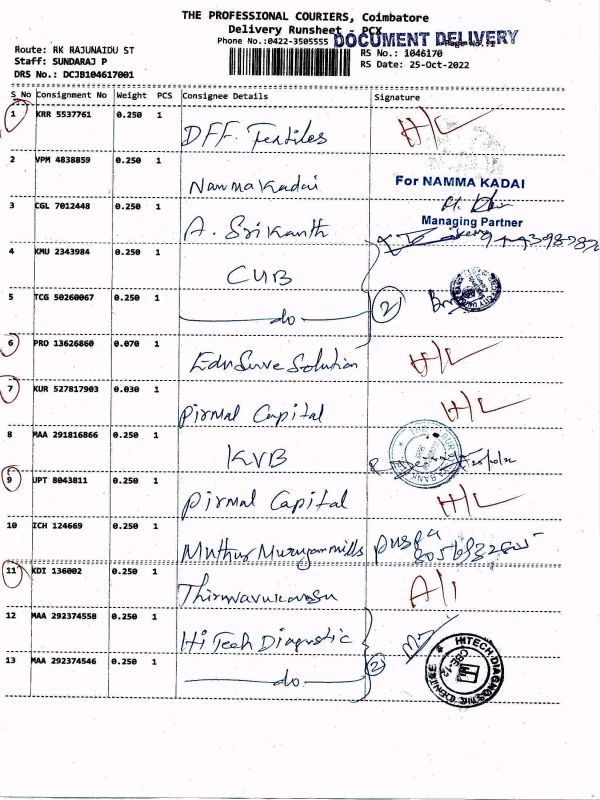 THE PROFESSIONAL COURIERS, Coimbatore
Delivery Runsheet - PCX
Phone No.:0422-3505555
DOCUMENT DELIVERY
Route: RK RAJUNAIDU ST
RS No.: 1046170
Staff: SUNDARAJ P
RS Date: 25-Oct-2022
DRS No.: DCJB104617001
S No Consignment No Weight PCS Consignee Details Signature
1 KRR 5537761 0.250 1 DFF Textiles H/L
2 VPM 4838859 0.250 1 Namma Kadai For NAMMA KADAI
Managing Partner
3 CGL 7012448 0.250 1 A. Srikanth
4 KMU 2343984 0.250 1 CUB
5 TCG 50260067 0.250 1 do (2)
6 PRO 13626860 0.070 1 EduServe Solution H/L
7 KUR 527817903 0.030 1 Pirmal Capital H/L
8 MAA 291816866 0.250 1 KVB
9 UPT 8043811 0.250 1 Pirmal Capital H/L
10 ICH 124669 0.250 1 Muthur Murugan mills
11 KDI 136002 0.250 1 A/L
12 MAA 292374558 0.250 1 Hi Tech Diagnostic
13 MAA 292374546 0.250 1 do (2)
HITECH DIAGNOSTIC CENTRE